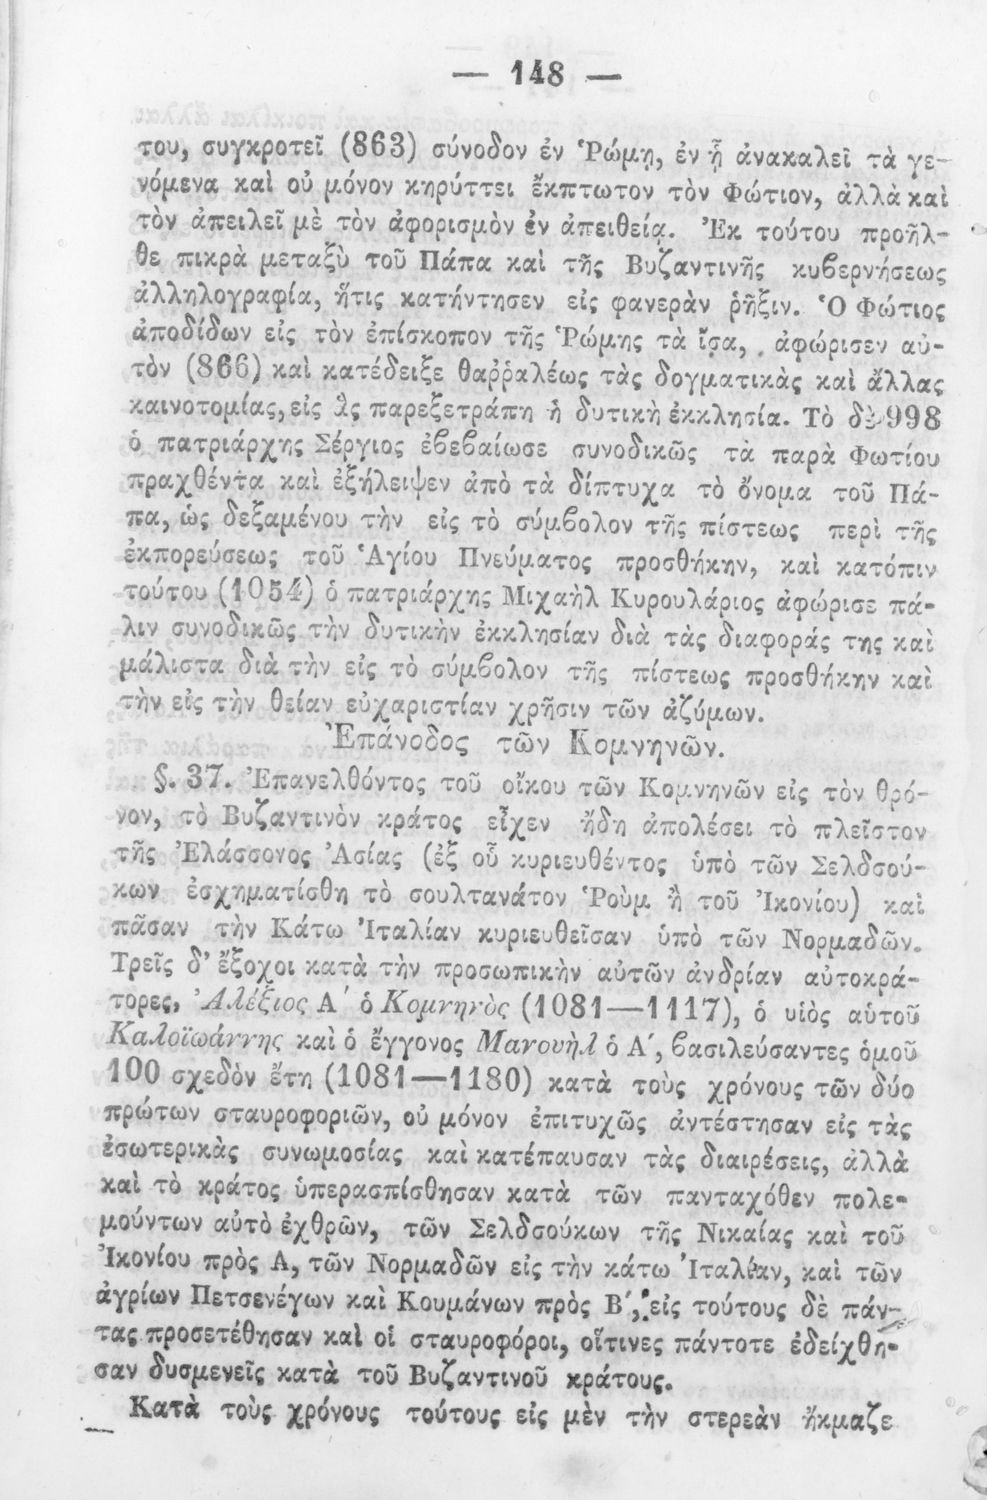 — 148 —
του, συγκροτεῖ (863) σύνοδον ἐν Ῥώμῃ, ἐν ᾗ ἀνακαλεῖ τὰ γε-
νόμενα καὶ οὐ μόνον κηρύττει ἔκπτωτον τὸν Φώτιον, ἀλλὰ καὶ
τὸν ἀπειλεῖ μὲ τὸν ἀφορισμὸν ἐν ἀπειθείᾳ. Ἐκ τούτου προῆλ-
θε πικρὰ μεταξὺ τοῦ Πάπα καὶ τῆς Βυζαντινῆς κυβερνήσεως
ἀλληλογραφία, ἥτις κατήντησεν εἰς φανερὰν ῥῆξιν. Ὁ Φώτιος
ἀποδίδων εἰς τὸν ἐπίσκοπον τῆς Ῥώμης τὰ ἴσα, ἀφώρισεν αὐ-
τὸν (866) καὶ κατέδειξε θαῤῥαλέως τὰς δογματικὰς καὶ ἄλλας
καινοτομίας, εἰς ἃς παρεξετράπη ἡ δυτικὴ ἐκκλησία. Τὸ δὲ 998
ὁ πατριάρχης Σέργιος ἐβεβαίωσε συνοδικῶς τὰ παρὰ Φωτίου
πραχθέντα καὶ ἐξήλειψεν ἀπὸ τὰ δίπτυχα τὸ ὄνομα τοῦ Πά-
πα, ὡς δεξαμένου τὴν εἰς τὸ σύμβολον τῆς πίστεως περὶ τῆς
ἐκπορεύσεως τοῦ Ἁγίου Πνεύματος προσθήκην, καὶ κατόπιν
τούτου (1054) ὁ πατριάρχης Μιχαὴλ Κυρουλάριος ἀφώρισε πά-
λιν συνοδικῶς τὴν δυτικὴν ἐκκλησίαν διὰ τὰς διαφοράς της καὶ
μάλιστα διὰ τὴν εἰς τὸ σύμβολον τῆς πίστεως προσθήκην καὶ
τὴν εἰς τὴν θείαν εὐχαριστίαν χρῆσιν τῶν ἀζύμων.
Ἐπάνοδος τῶν Κομνηνῶν.
§. 37. Ἐπανελθόντος τοῦ οἴκου τῶν Κομνηνῶν εἰς τὸν θρό-
νον, τὸ Βυζαντινὸν κράτος εἶχεν ἤδη ἀπολέσει τὸ πλεῖστον
τῆς Ἐλάσσονος Ἀσίας (ἐξ οὗ κυριευθέντος ὑπὸ τῶν Σελδσού-
κων ἐσχηματίσθη τὸ σουλτανάτον Ῥοὺμ ἢ τοῦ Ἰκονίου) καὶ
πᾶσαν τὴν Κάτω Ἰταλίαν κυριευθεῖσαν ὑπὸ τῶν Νορμαδῶν.
Τρεῖς δ' ἔξοχοι κατὰ τὴν προσωπικὴν αὐτῶν ἀνδρίαν αὐτοκρά-
τορες, Ἀλέξιος Α΄ ὁ Κομνηνὸς (1081—1117), ὁ υἱὸς αὐτοῦ
Καλοϊωάννης καὶ ὁ ἔγγονος Μανουὴλ ὁ Α΄, βασιλεύσαντες ὁμοῦ
100 σχεδὸν ἔτη (1081—1180) κατὰ τοὺς χρόνους τῶν δύο
πρώτων σταυροφοριῶν, οὐ μόνον ἐπιτυχῶς ἀντέστησαν εἰς τὰς
ἐσωτερικὰς συνωμοσίας καὶ κατέπαυσαν τὰς διαιρέσεις, ἀλλὰ
καὶ τὸ κράτος ὑπερασπίσθησαν κατὰ τῶν πανταχόθεν πολε-
μούντων αὐτὸ ἐχθρῶν, τῶν Σελδσούκων τῆς Νικαίας καὶ τοῦ
Ἰκονίου πρὸς Α, τῶν Νορμαδῶν εἰς τὴν κάτω Ἰταλίαν, καὶ τῶν
ἀγρίων Πετσενέγων καὶ Κουμάνων πρὸς Β΄, εἰς τούτους δὲ πάν-
τας προσετέθησαν καὶ οἱ σταυροφόροι, οἵτινες πάντοτε ἐδείχθη-
σαν δυσμενεῖς κατὰ τοῦ Βυζαντινοῦ κράτους.
Κατὰ τοὺς χρόνους τούτους εἰς μὲν τὴν στερεὰν ἤκμαζε